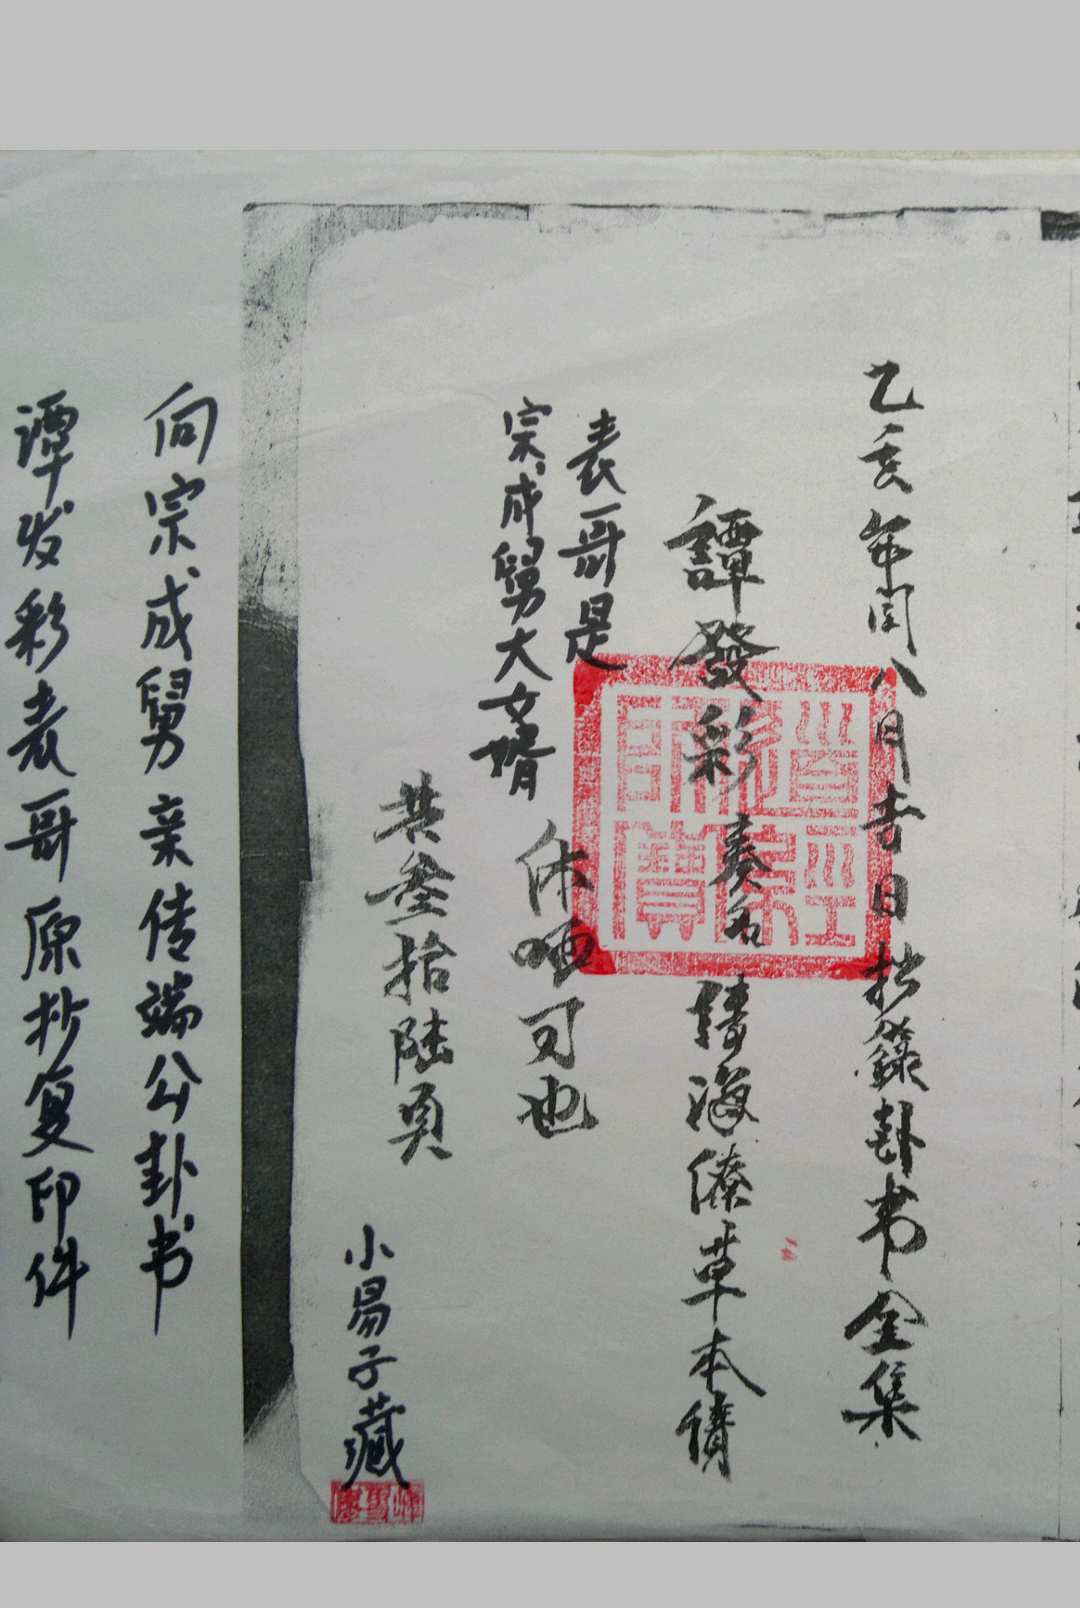 乙亥年闰八月吉日抄籙卦书全集
譚發彩奏名 海 草本
表哥是
宗成舅大女婿
休哂可也
共叁拾陆页
小易子藏
向宗成舅亲传端公卦书
谭发彩表哥原抄复印件
道經師寶